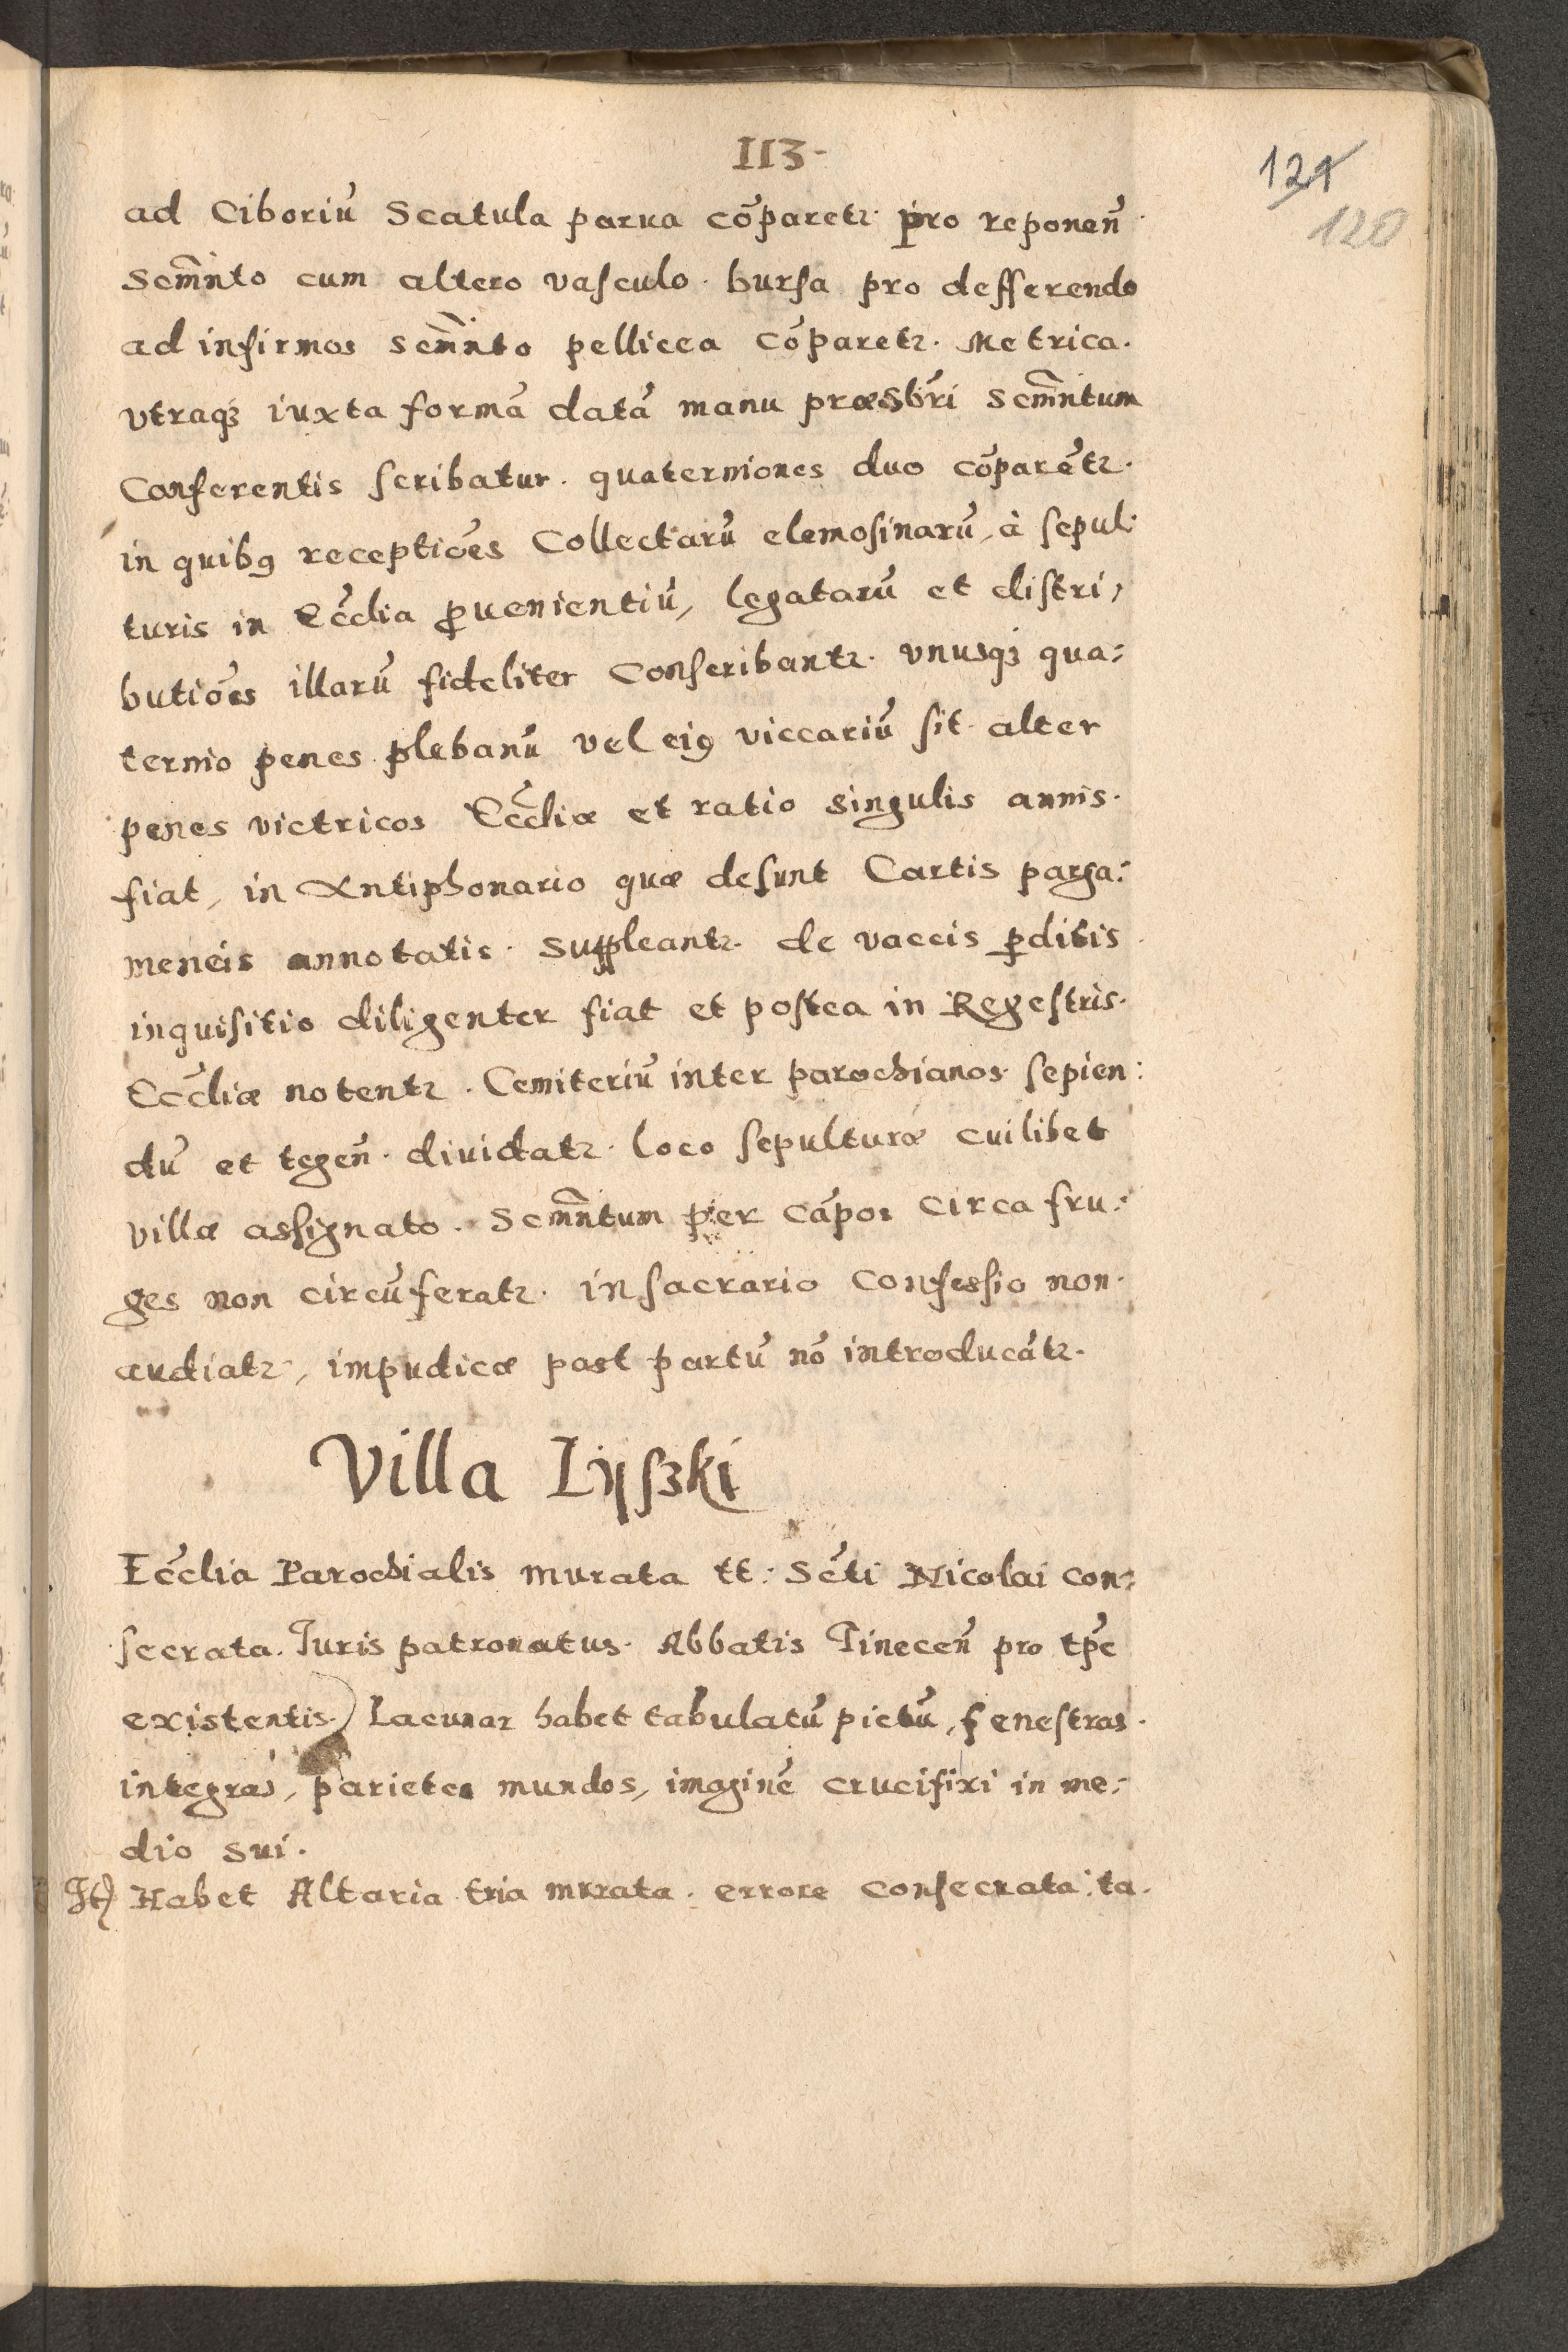 113-
121
120
ad Ciboriū Scatula parua cōparetr. pro reponen̄
Scm̄nto cum altero vasculo. bursa pro defferendo
ad infirmos Scm̄nto pellicea cōparetr. Metrica.
vtraqꝫ iuxta formā datā manu præsbr̄i Scm̄ntum
Conferentis scribatur. quaterniones duo cōparētr.
in quibꝯ receptiōes Collectarū elemosinarū, à sepul:
turis in Eccl̄ia ꝓuenientiū, legatarū et distri,
butiōes illarū fideliter Conscribantr. vnusqꝫ qua:
ternio penes plebanū vel eiꝯ viccariū sit. alter
penes victricos Eccl̄iæ et ratio singulis annis.
fiat, in Antiphonario quæ desunt Cartis parga:
meneis annotatis. suppleantr. de vaccis ꝑditis.
inquisitio diligenter fiat et postea in Regestris.
Eccl̄iæ notentr. Cemiteriū inter parochianos sepien:
dū et tegen̄. diuidatr. loco sepulturæ cuilibet
villæ assignato. Scm̄ntum per cāpos circa fru:
ges non circūferatr. in sacrario Confessio non.
audiatr, impudicæ post partū nō introducātr.
Villa Lyszki
Eccl̄ia Parochialis murata tt: Scti Nicolai con:
secrata. Iuris patronatus. Abbatis Tinecen̄ pro tp̄e
existentis. Lacunar habet tabulatū pictū, fenestras.
integras, parietes mundos, imaginē crucifixi in me:
dio sui.
It) Habet Altaria tria murata. errore consecrata. ta.